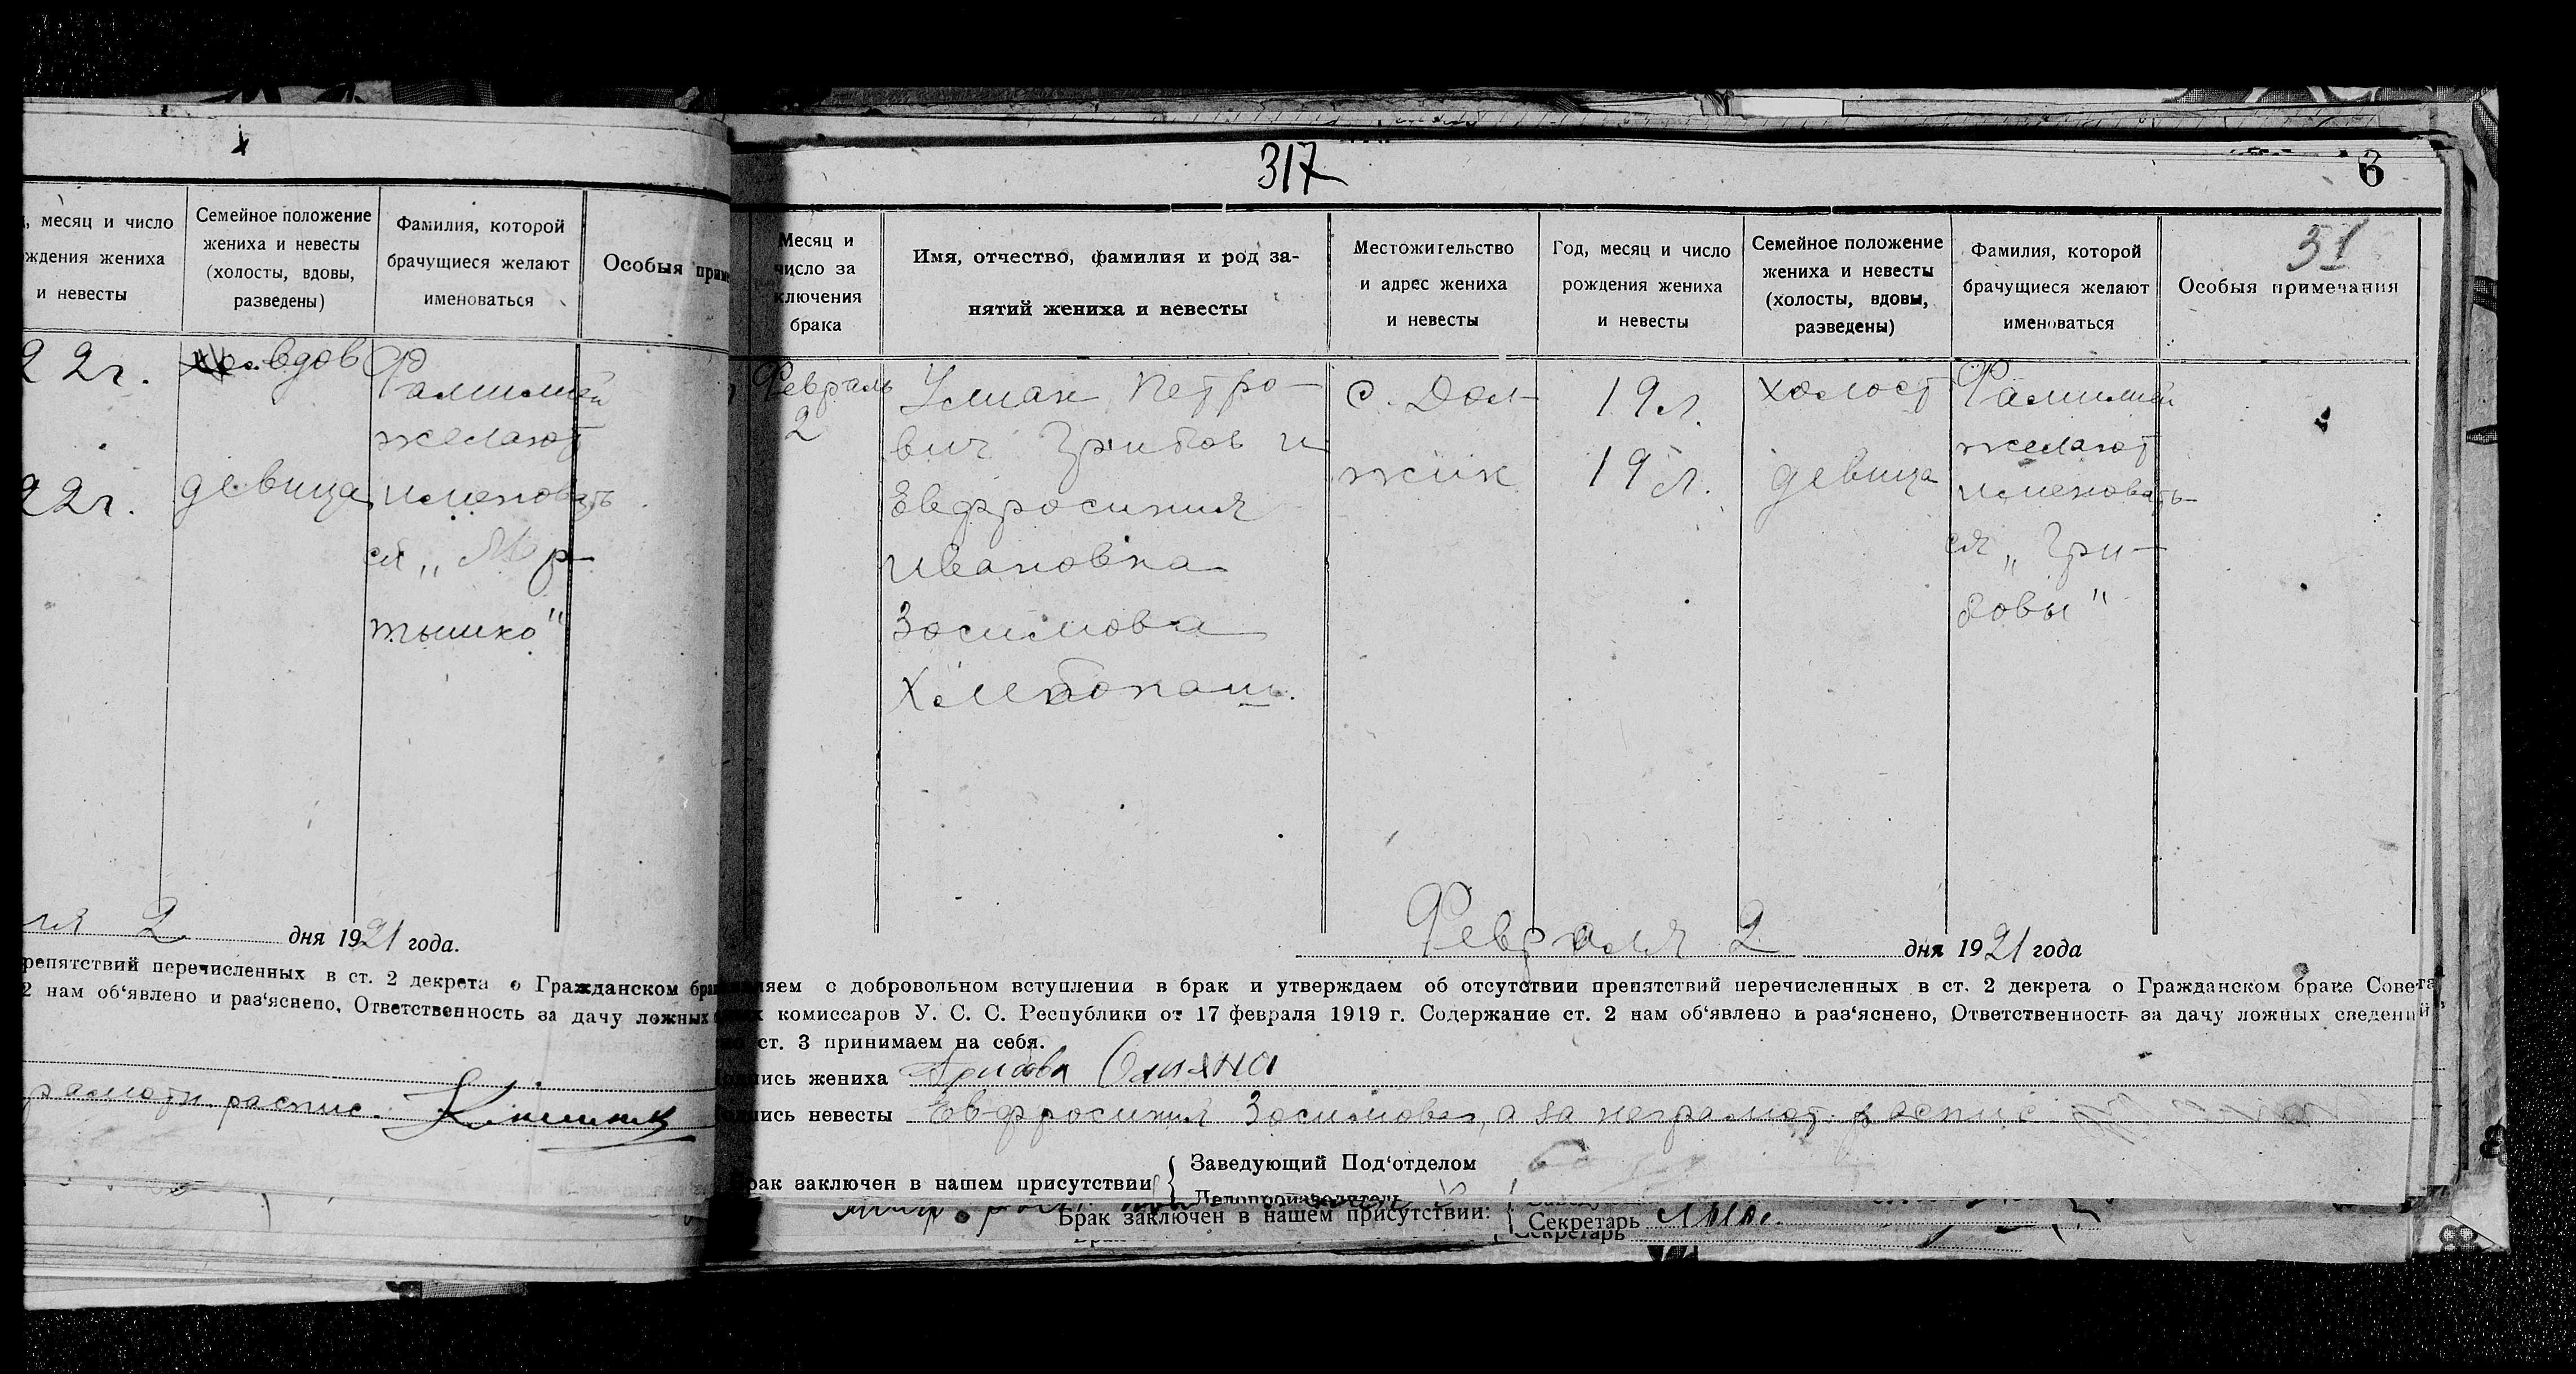 х
, месяц и число
ждения жениха
и невесты
Семейное положение
жениха и невесты
(холосты, вдовы,
разведены)
Фамилия, которой
брачущиеся желают
именоваться
Особыя приме
22г.
вдов
Фамилией
желают
22г.
девица
именовать
ся „Мар-
тышко"
2 дня 1921 года.
репятствий перечисленных в ст. 2 декрета о Гражданском брак
2 нам об‘явлено и раз‘яснено, Ответственность за дачу ложных
распис.
317
6
51
Месяц и
число за
ключения
брака
Имя, отчество, фамилия и род за-
нятий жениха и невесты
Местожительство
и адрес жениха
и невесты
Год, месяц и число
рождения жениха
и невесты
Семейное положение
жениха и невесты
(холосты, вдовы,
разведены)
Фамилия, которой
брачущиеся желают
именоваться
Особыя примечания
Февраль
2
Улиан Петро-
вич Грибов и
Евфросиния
Ивановна
Зосимова
Хлебопаш.
с. Дол-
жик
19 л.
19 л.
холост
девица
Фамилией
желают
именовать-
ся „Гри-
бовы"
Февраля 2 дня 1921 года
ляем о добровольном вступлении в брак и утверждаем об отсутствии препятствий перечисленных в ст. 2 декрета о Гражданском браке Совета
комиссаров У. С. С. Республики от 17 февраля 1919 г. Содержание ст. 2 нам об‘явлено и раз‘яснено, Ответственность за дачу ложных сведений,
ст. 3 принимаем на себя.
дпись жениха Грибов Олияна
дпись невесты Евфросиния Зосимова, а за неграмот. распис
Брак заключен в нашем присутствии { Заведующий Под‘отделом
Делопроизводитель
Брак заключен в нашем присутствии: { Секретарь
Секретарь